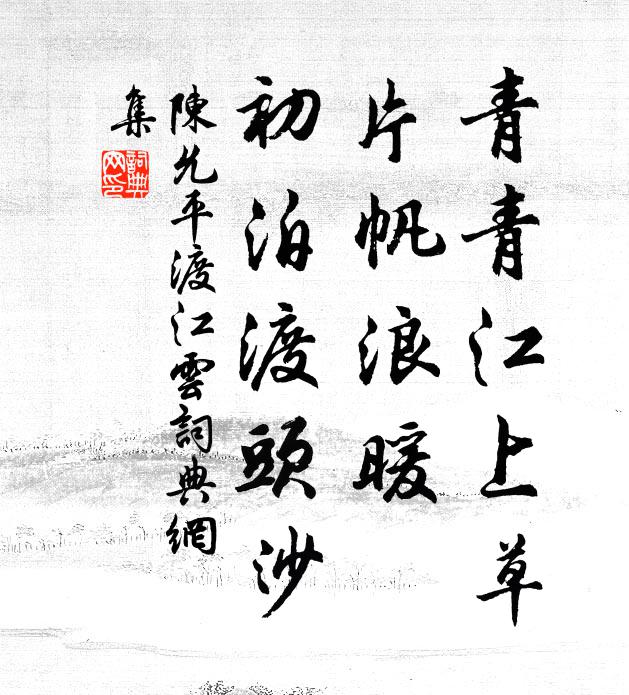 青青江上草
片帆浪暖
初泊渡頭沙
陳允平渡江雲詞典網
集
詞典网印